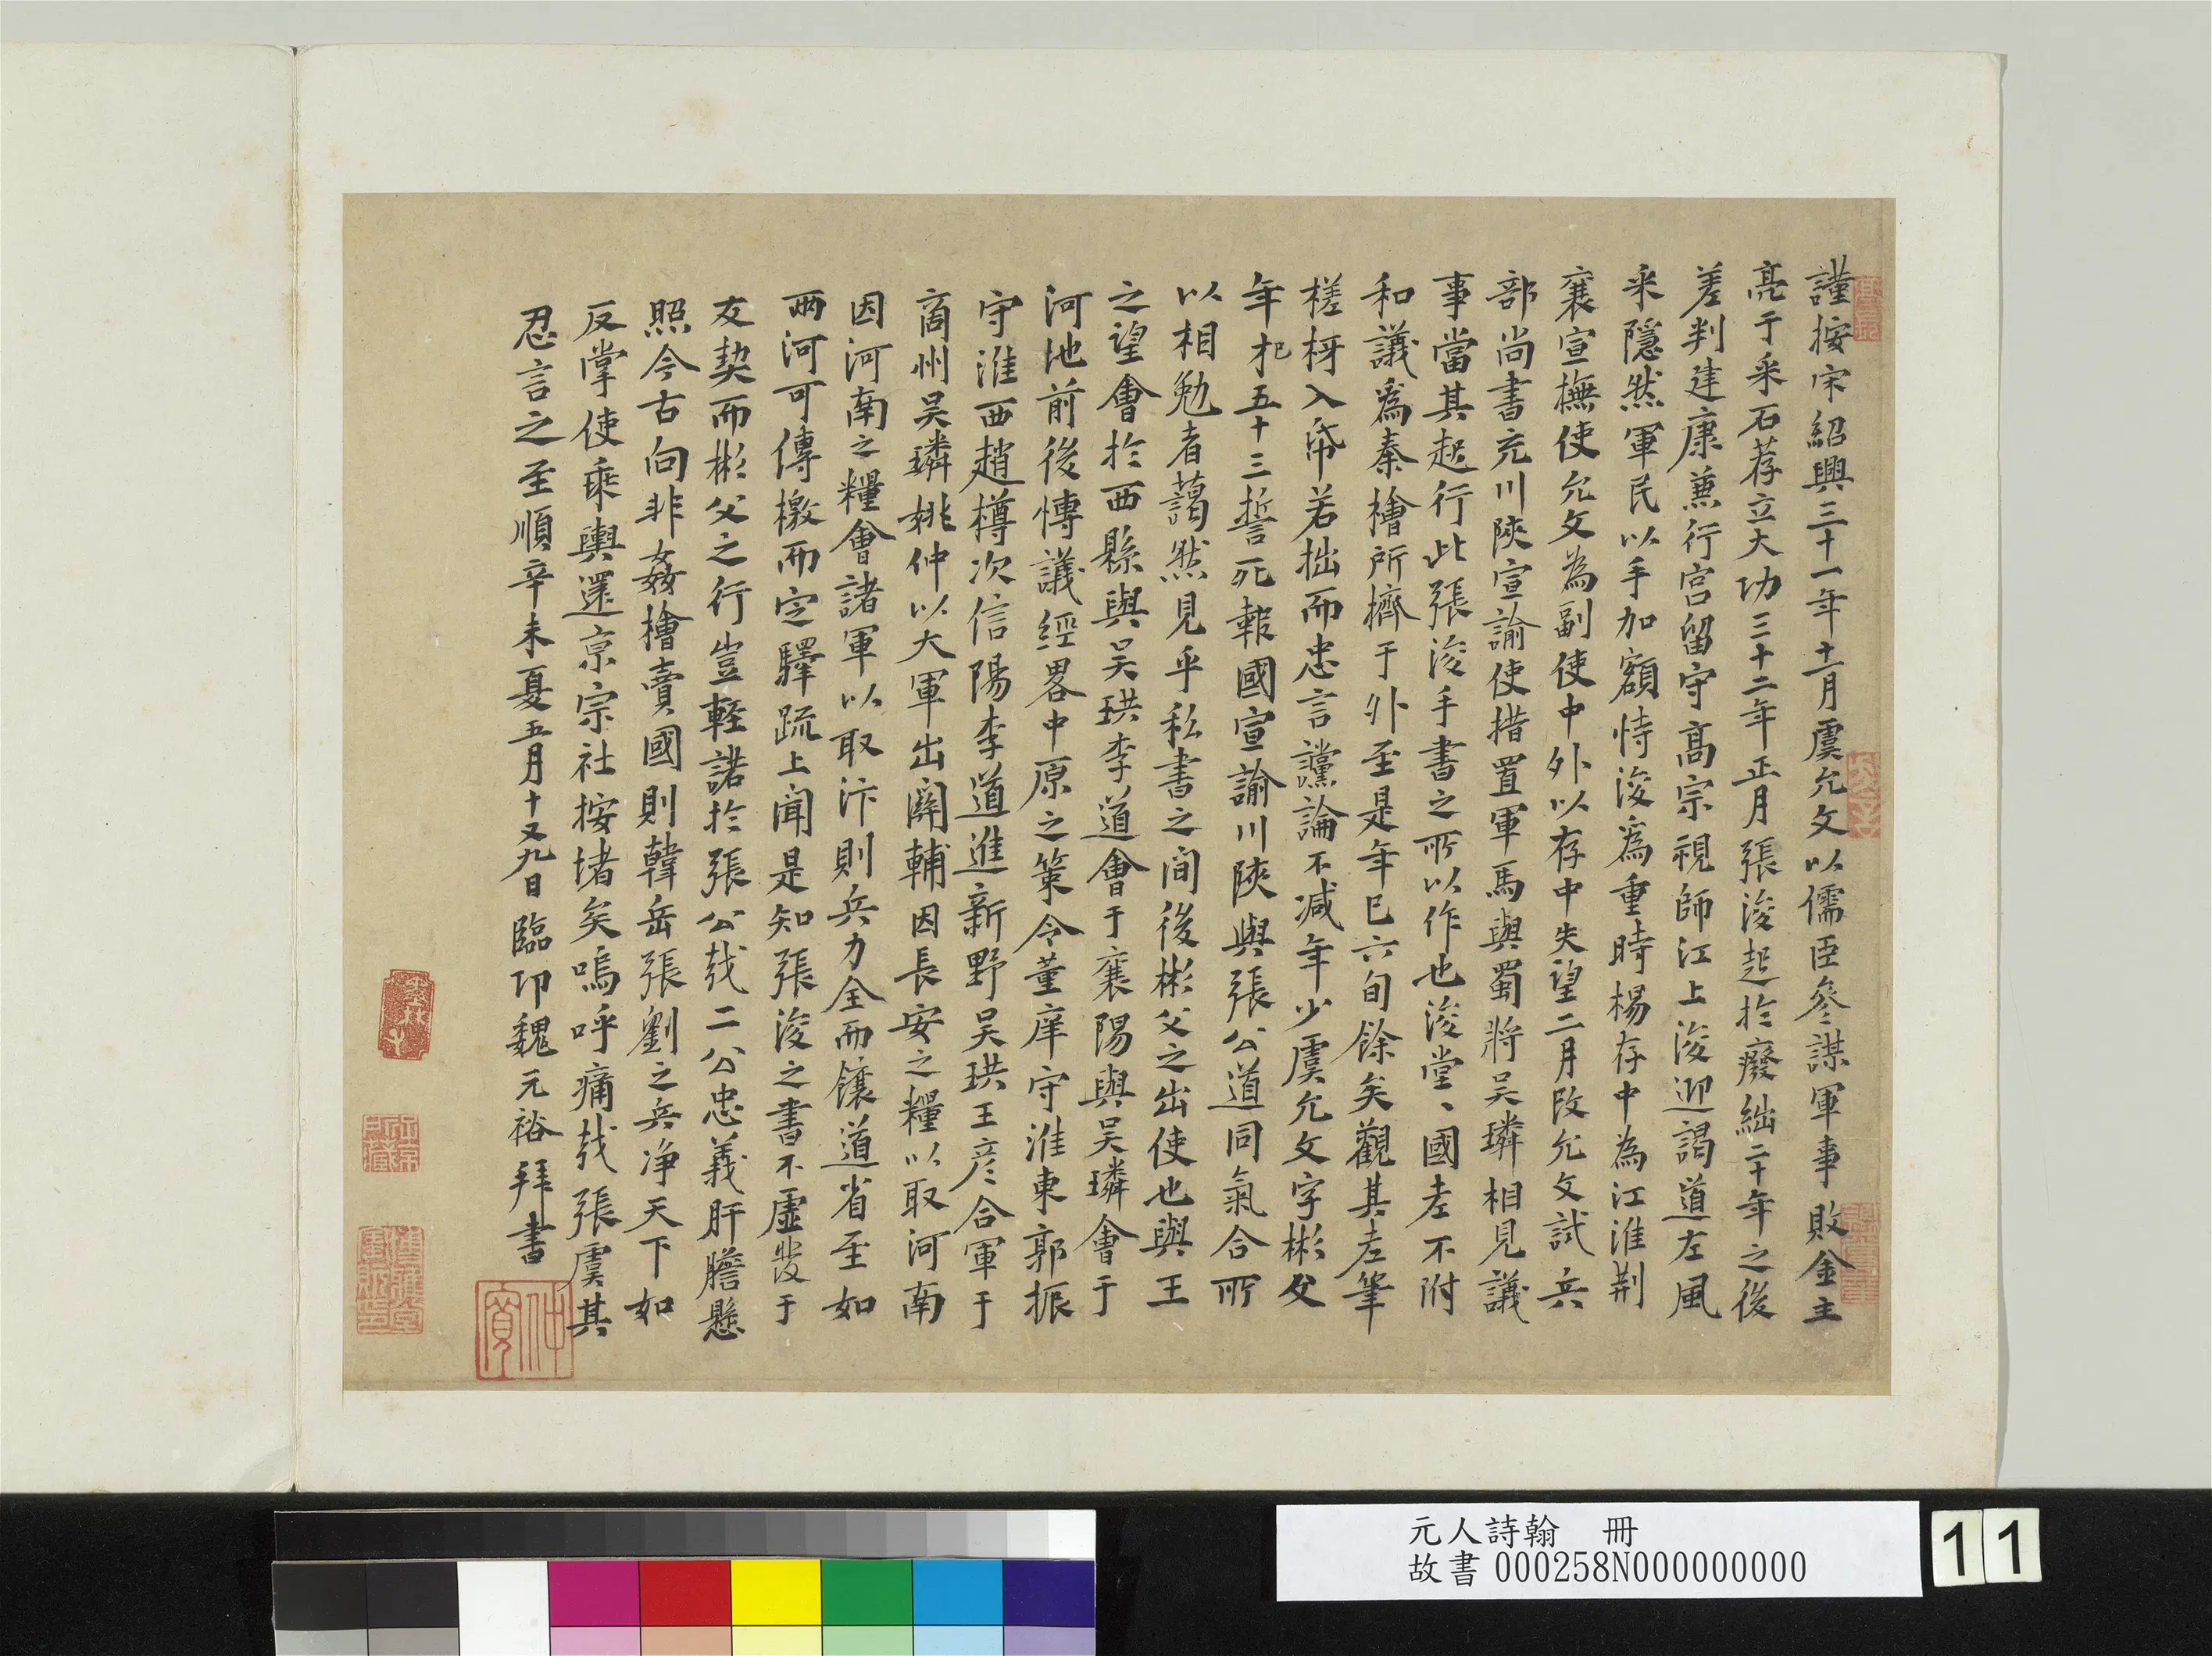 謹按宋紹興三十一年十一月虞允文以儒臣參謀軍事敗金主
亮于采石荐立大功三十二年正月張浚起於廢絀二十年之後
差判建康兼行宮留守高宗視師江上浚迎謁道左風
采隱然軍民以手加額恃浚為重時楊存中為江淮荆
襄宣撫使允文為副使中外以存中失望二月改允文試兵
部尚書充川陝宣諭使措置軍馬與蜀將吳璘相見議
事當其起行此張浚手書之所以作也浚堂、國老不附
和議為秦檜所擠于外至是年已六旬餘矣觀其老筆
槎枒入帋若拙而忠言讜論不减年少虞允文字彬父
年五十三誓死報國宣諭川陝與張公道同氣合所
以相勉者藹然見乎私書之間後彬父之出使也與王
之望會於西縣與吳珙李道會于襄陽與吳璘會于
河池前後慱議經畧中原之策令董庠守淮東郭振
守淮西趙樽次信陽李道進新野吳珙王彦合軍于
商州吳璘姚仲以大軍出關輔因長安之糧以取河南
因河南之糧會諸軍以取汴則兵力全而饟道省至如
兩河可傳檄而定驛疏上聞是知張浚之書不虛發于
友契而彬父之行豈輕諾於張公㦲二公忠義肝膽懸
照今古向非姦檜賣國則韓岳張劉之兵净天下如
反掌使乘輿還京宗社按堵矣嗚呼痛㦲張虞其
忍言之至順辛未夏五月十又九日臨卭魏元裕拜書
仲寳
元人詩翰 冊
故書 000258N000000000
11